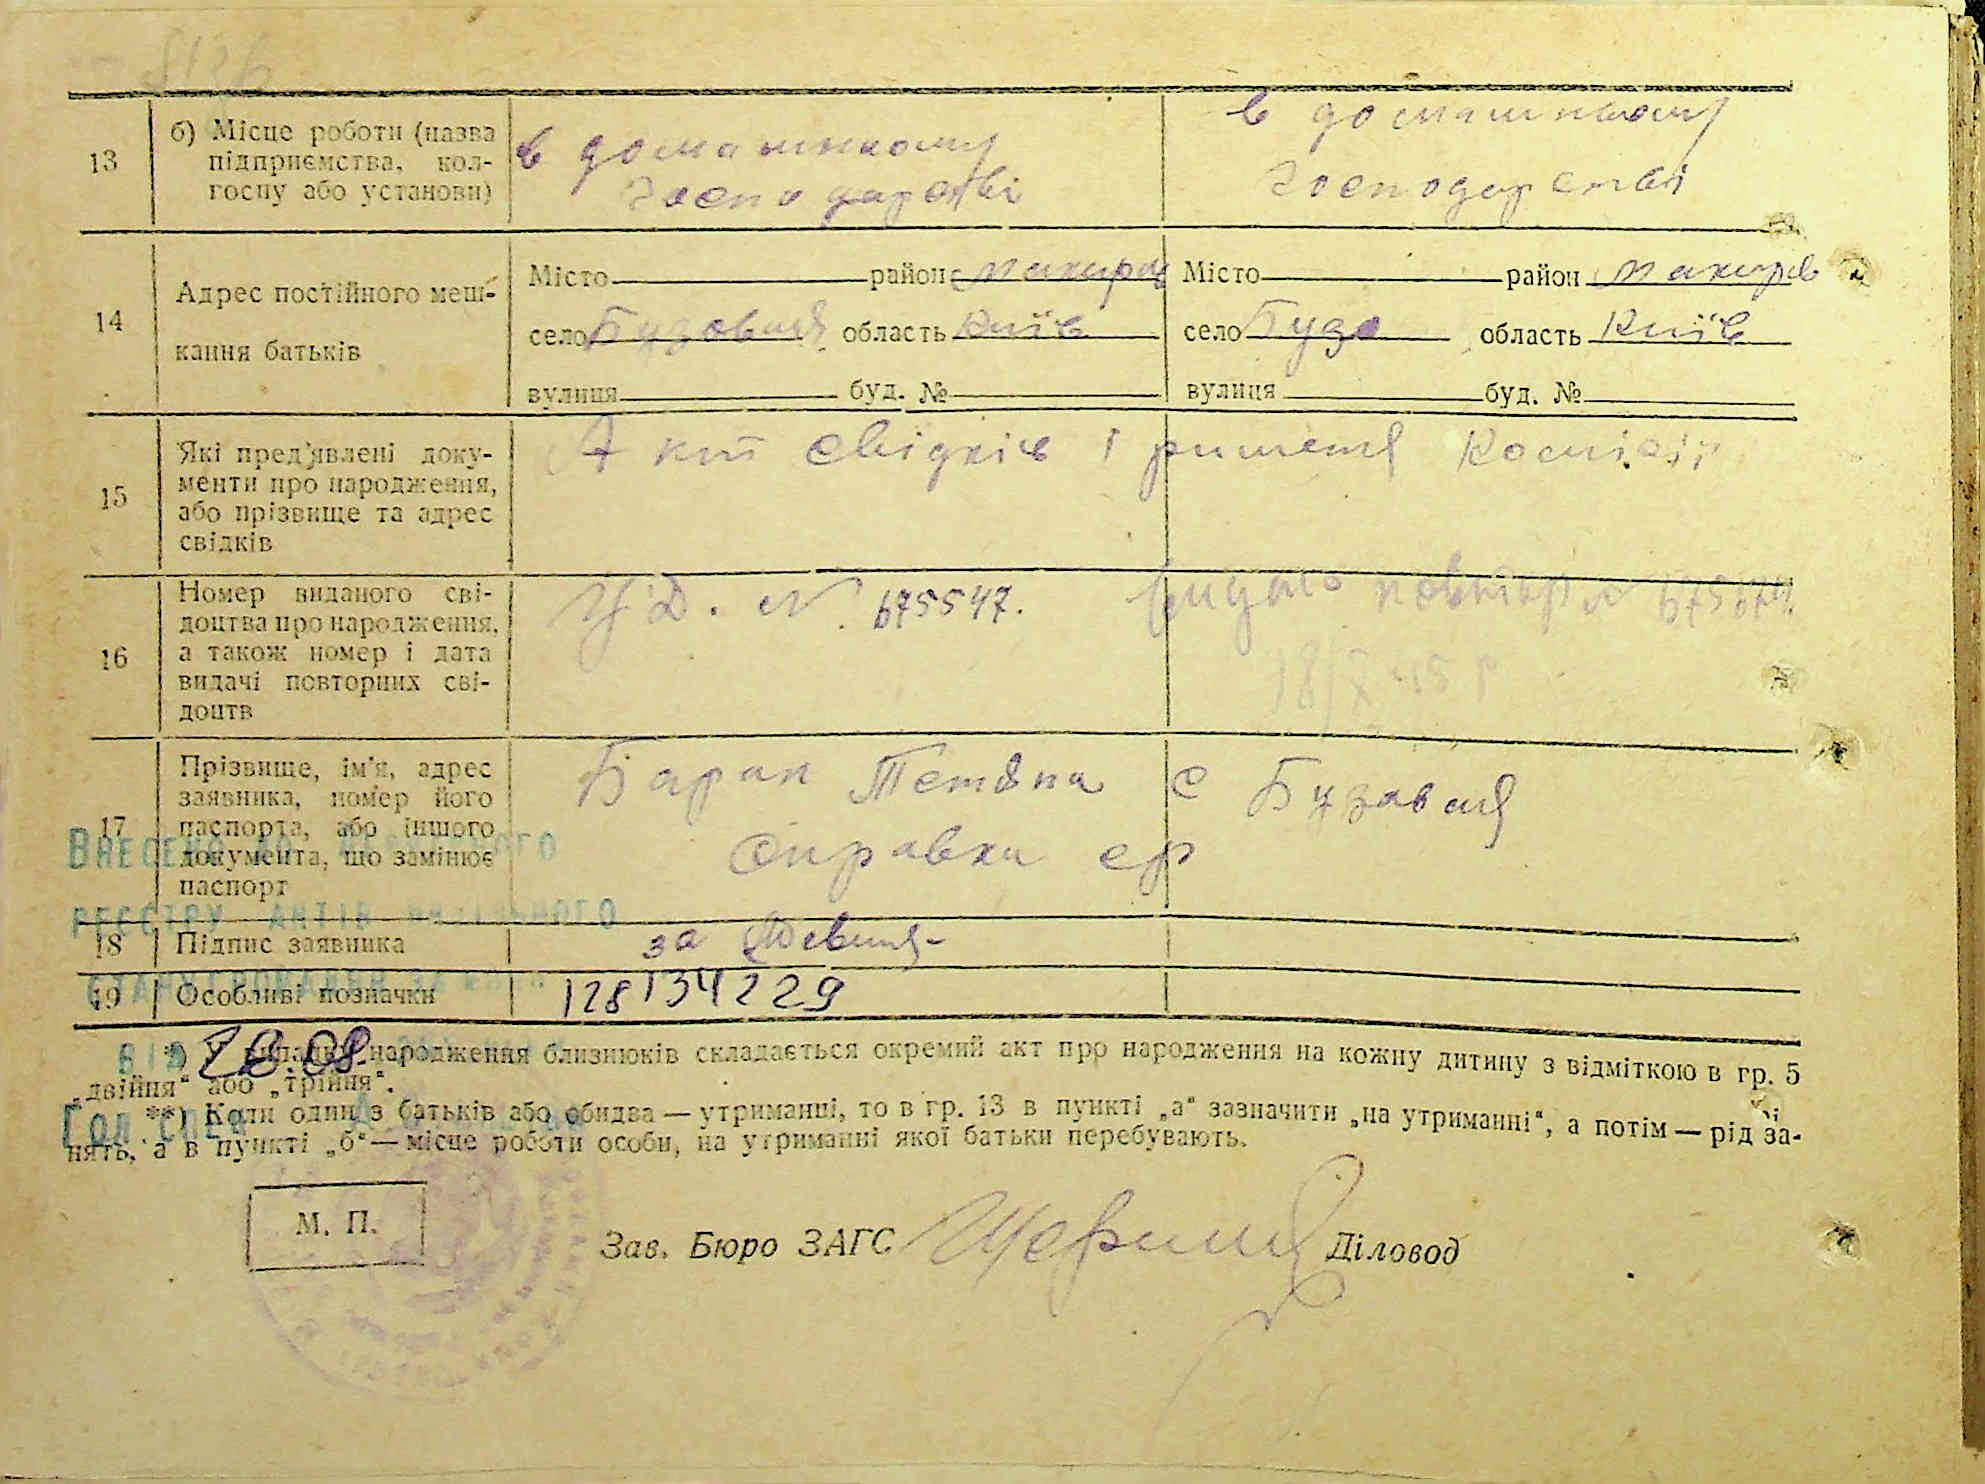 13
б) Місце роботи (назва
підприємства, кол-
госпу або установи)
в домашньому
господарстві
в домашньому
господарстві
14
Адрес постійного меш-
кання батьків
Місто район Макарів
село Бузовая область Київ
вулиця буд. №
Місто район Макарів
село Бузо область Київ
вулиця буд. №
15
Які пред'явлені доку-
менти про народження,
або прізвище та адрес
свідків
Акт свідків і ришеня Комісії
16
Номер виданого сві-
доцтва про народження,
а також номер і дата
видачі повторних сві-
доцтв
№ 675547.
видано повтор № 675674.
18/X 45 г
17
Прізвище, ім'я, адрес
заявника, номер його
паспорта, або іншого
документа, що замінює
паспорт
Баран Тетяна с Бузовая
Справка ср
Внесено до
реєстру актів
18
Підпис заявника
за
19
Особливі позначки
128134229
*) У випадку народження близнюків складається окремий акт про народження на кожну дитину з відміткою в гр. 5
„двійня“ або „трійня“.
**) Коли один з батьків або обидва — утриманці, то в гр. 13 в пункті „а“ зазначити „на утриманні“, а потім — рід за-
нять, а в пункті „б“ — місце роботи особи, на утриманні якої батьки перебувають.
М. П.
Зав. Бюро ЗАГС
Діловод